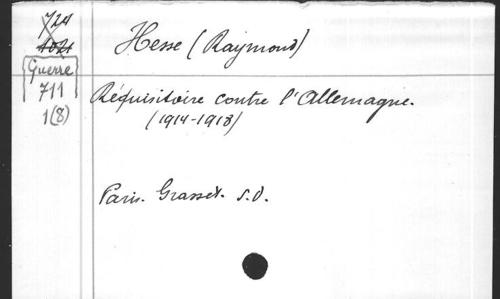 Hesse (Raymond)
Guerre
711
1(8)
Réquisitoire contre l'Allemagne.
(1914-1918)
Paris. Grasset. S.D.